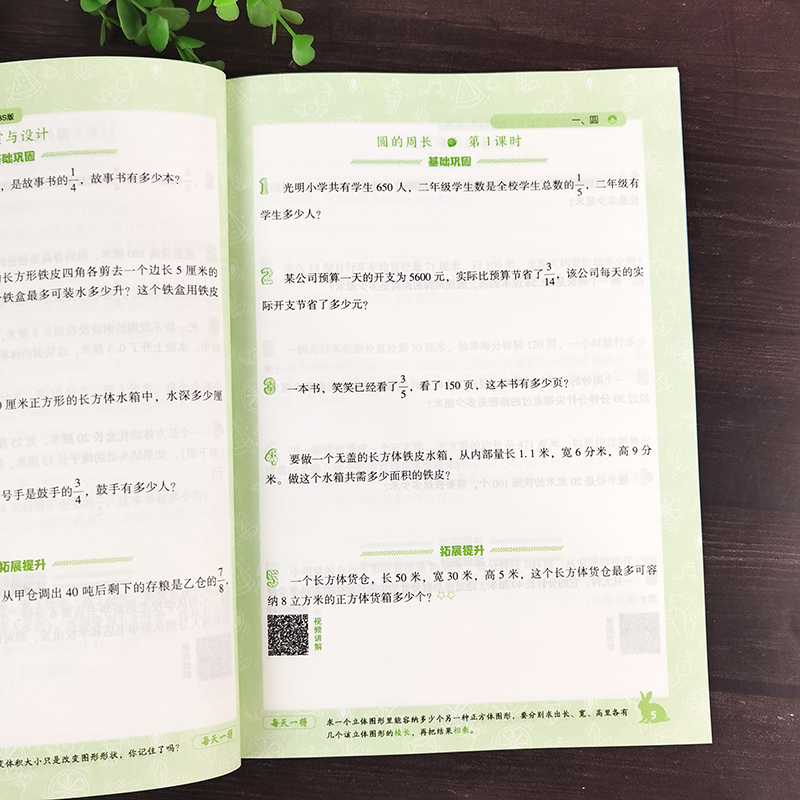 BS版
与设计
基础巩固
，是故事书的1/4，故事书有多少本？
长方形铁皮四角各剪去一个边长 5 厘米的
铁盒最多可装水多少升？ 这个铁盒用铁皮
厘米正方形的长方体水箱中，水深多少厘
号手是鼓手的3/4，鼓手有多少人？
拓展提升
从甲仓调出 40 吨后剩下的存粮是乙仓的7/8，
每天一精
体积大小只是改变图形形状，你记住了吗？
一、圆
圆的周长 第 1 课时
基础巩固
1 光明小学共有学生 650 人，二年级学生数是全校学生总数的1/5，二年级有
学生多少人？
2 某公司预算一天的开支为 5600 元，实际比预算节省了3/14，该公司每天的实
际开支节省了多少元？
3 一本书，笑笑已经看了3/5，看了 150 页，这本书有多少页？
4 要做一个无盖的长方体铁皮水箱，从内部量长 1.1 米，宽 6 分米，高 9 分
米。做这个水箱共需多少面积的铁皮？
拓展提升
5 一个长方体货仓，长 50 米，宽 30 米，高 5 米，这个长方体货仓最多可容
纳 8 立方米的正方体货箱多少个？
视频讲解
每天一精
求一个立体图形里能容纳多少个另一种正方体图形，要分别求出长、宽、高里各有
几个该立体图形的棱长，再把结果相乘。
5